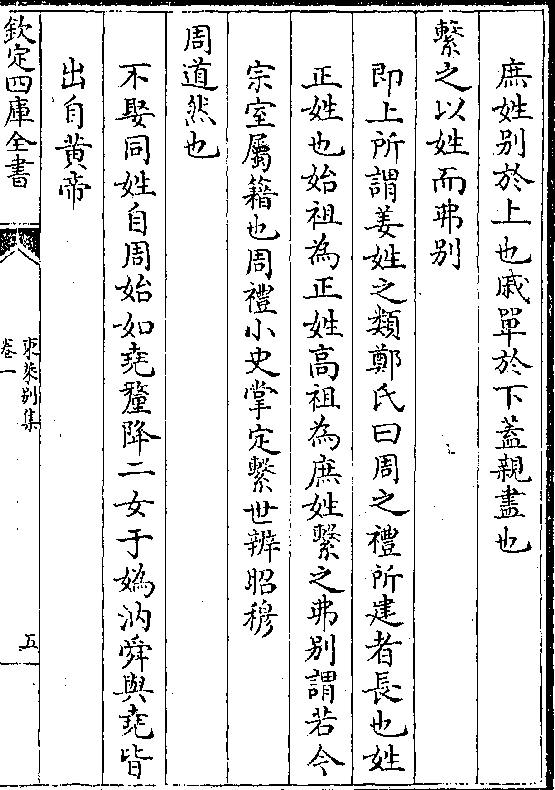 庶姓别於上也戚單於下蓋親盡也
繫之以姓而弗别
即上所謂姜姓之類鄭氏曰周之禮所建者長也姓
正姓也始祖為正姓髙祖為庶姓繫之弗别謂若今
宗室屬籍也周禮小史掌定繫世辨昭穆
周道然也
不娶同姓自周始如堯釐降二女于媯汭舜與堯皆
出自黄帝
欽定四庫全書
東萊别集
卷一
五